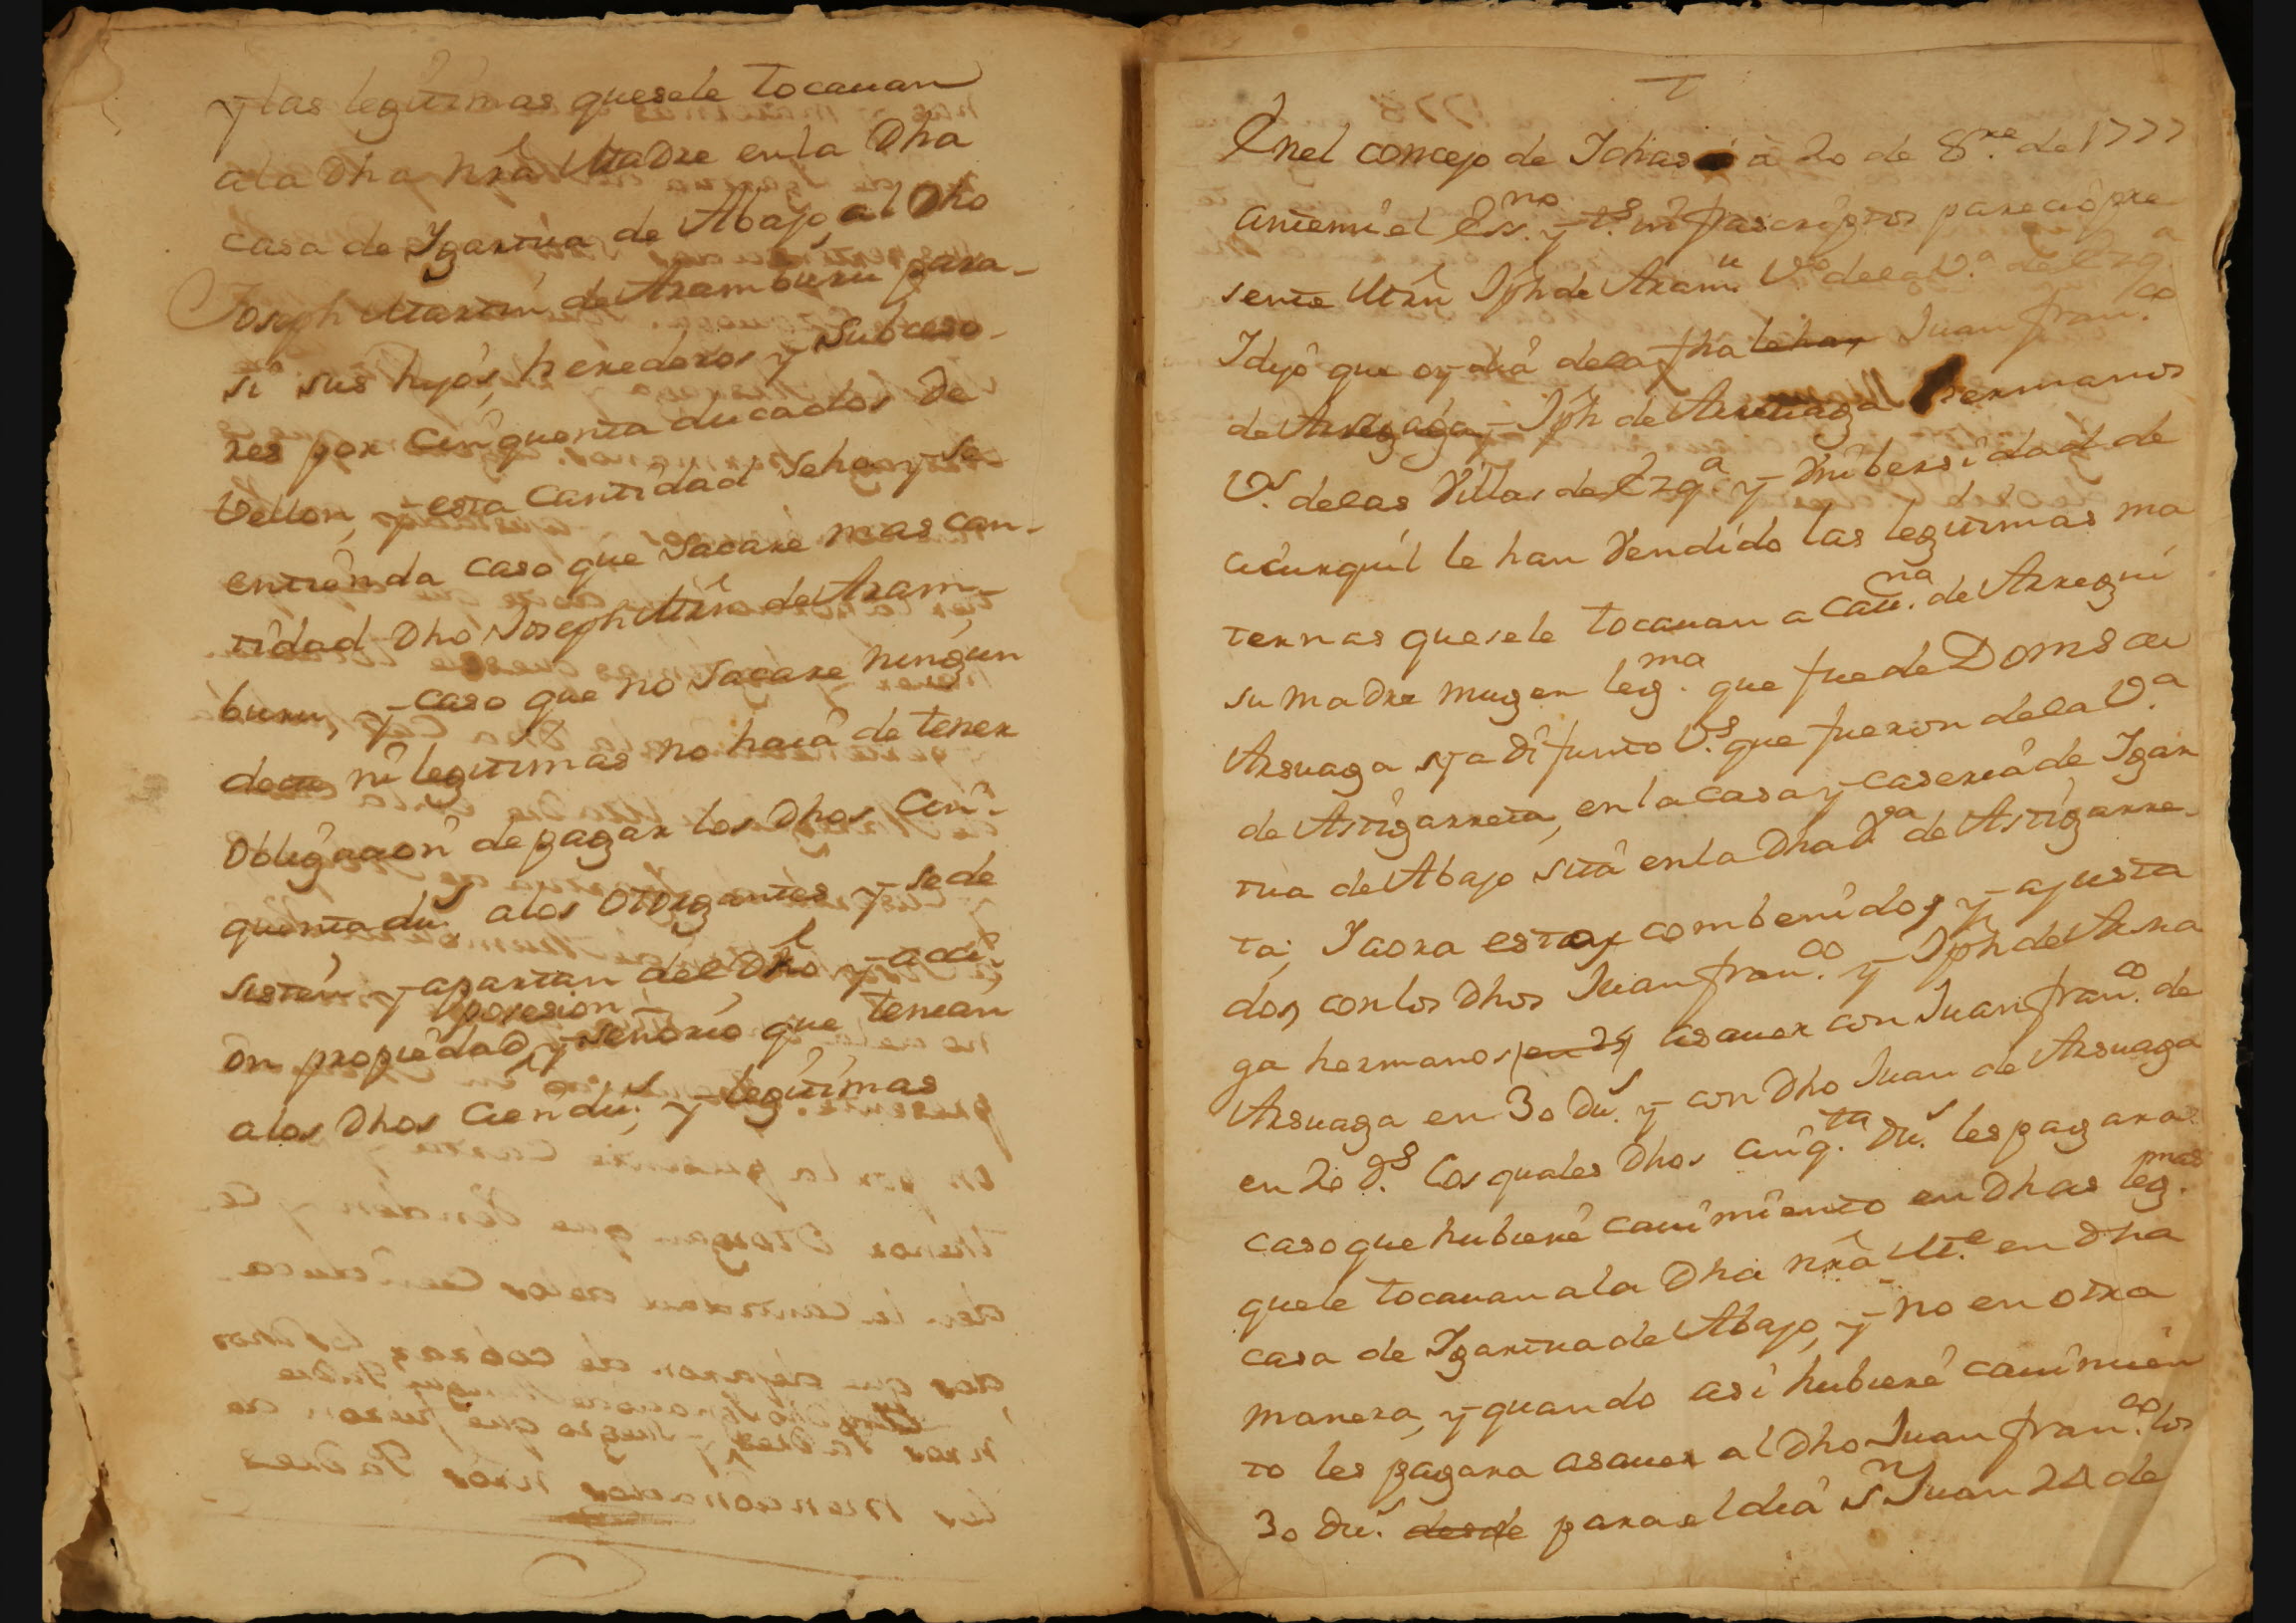 y las legitimas quesele tocauan
ala Dha nra Madre enla Dha
casa de Ygartua de Abajo, al Dho
Joseph Martin de Aramburu para
si sus hijos, herederos y subceso-
res por cinquenta ducados de
Vellon, y esta Cantidad seha y se
entienda caso que sacare mas can-
tidad Dho Joseph Mrn de Aram-
buru, y caso que no sacare ningun
ni legitimas no haia de tener
Obligacion de pagar los Dhos cin-
quenta dus. alos Otorgantes y sede
sisten y apartan del Dho y acci-
posesion
on propiedad y senorio que tenian
alos Dhos Cien dus. y legitimas
Enel concejo de Ichaso a 20 de 8re. de 1777
antemi el Essno. y ts. infrascriptos parecio pre
sente Mrn Jph de Aramu. Vo dela Va. de Ezqa
I dijo que oy dia dela fha lehan Juan Franco.
de Arsuaga y Jph de Arsuaga hermanos
Vs. delas Villas de Ezqa y Vnibersidad de
acurquil le han Vendido las legitimas ma
ternas quesele tocauan a Catna. de Arregui
su madre muger legma. que fue de Domsa
Arsuaga ya difunto Vs. que fueron dela Va.
de Astigarreta, en la casa y caseria de Igar
tua de Abajo sita en la Dha Va de Astigarre-
ta; I aora estan combenidos y ajusta
dos con los Dhos Juan franco. y Jph de Arsua
ga hermanos en 25 asauer con Juan franco. de
Arsuaga en 30 Dus. y con Dho Juan de Arsuaga
en 20 Ds. Los quales Dhos cinqta. Dus. les pagara
caso que hubiere cauimiento en Dhas legmas.
quele tocauan ala Dha nra Me. en Dha
casa de Ygartua de Abajo, y no en otra
manera, y quando asi hubiere cauimien
to les pagara asauer al Dho Juan franco. los
30 Dus. desde para el dia Sn Juan 24 de